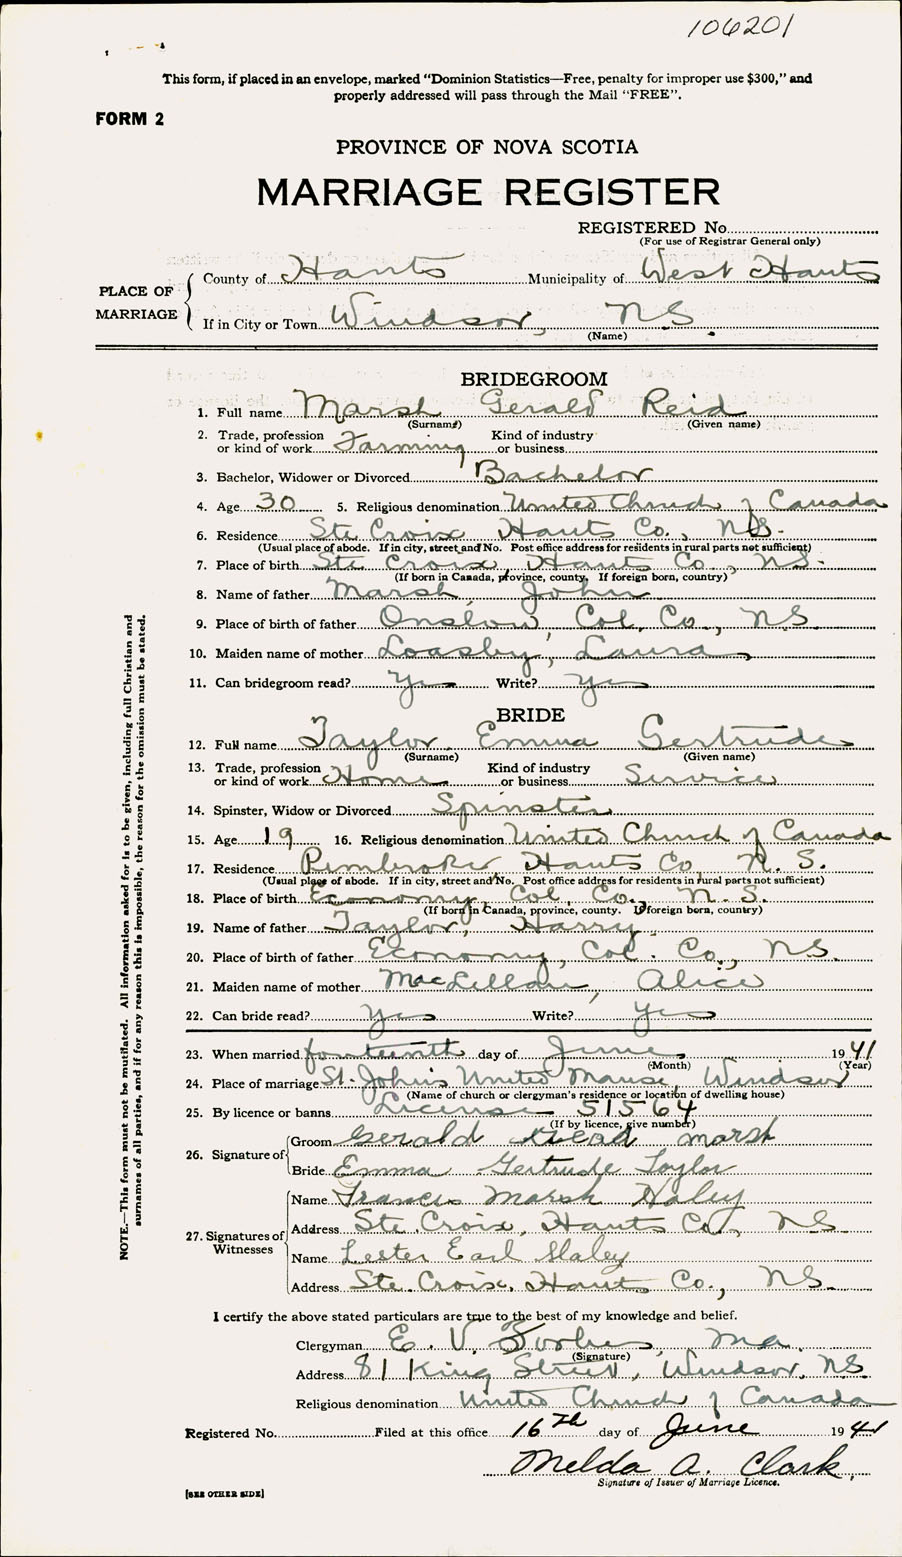 106201
This form, if placed in an envelope, marked "Dominion Statistics—Free, penalty for improper use $300," and
properly addressed will pass through the Mail "FREE".
FORM 2
PROVINCE OF NOVA SCOTIA
MARRIAGE REGISTER
REGISTERED No.
(For use of Registrar General only)
PLACE OF MARRIAGE
County of Hants Municipality of West Hants
If in City or Town Windsor, N.S.
(Name)
BRIDEGROOM
1. Full name Marsh Gerald Reid
(Surname) (Given name)
2. Trade, profession or kind of work Farming Kind of industry or business
3. Bachelor, Widower or Divorced Bachelor
4. Age 30 5. Religious denomination United Church of Canada
6. Residence Ste Croix Hants Co., N.S.
(Usual place of abode. If in city, street and No. Post office address for residents in rural parts not sufficient)
7. Place of birth Ste Croix, Hants Co., N.S.
(If born in Canada, province, county. If foreign born, country)
8. Name of father Marsh, John
9. Place of birth of father Onslow, Col. Co., N.S.
10. Maiden name of mother Loasby, Laura
11. Can bridegroom read? Yes Write? Yes
BRIDE
12. Full name Taylor, Emma Gertrude
(Surname) (Given name)
13. Trade, profession or kind of work Home Kind of industry or business Service
14. Spinster, Widow or Divorced Spinster
15. Age 19 16. Religious denomination United Church of Canada
17. Residence Pembroke Hants Co. N.S.
(Usual place of abode. If in city, street and No. Post office address for residents in rural parts not sufficient)
18. Place of birth Economy, Col. Co., N.S.
(If born in Canada, province, county. If foreign born, country)
19. Name of father Taylor, Harry
20. Place of birth of father Economy, Col. Co., N.S.
21. Maiden name of mother MacLellan, Alice
22. Can bride read? Yes Write? Yes
23. When married fourteenth day of June 1941
(Month) (Year)
24. Place of marriage St. John's United Manse, Windsor
(Name of church or clergyman's residence or location of dwelling house)
25. By licence or banns License 51564
(If by licence, give number)
26. Signature of
Groom Gerald Read Marsh
Bride Emma Gertrude Taylor
27. Signatures of Witnesses
Name Frances Marsh Haley
Address Ste. Croix, Hants Co., N.S.
Name Lester Earl Haley
Address Ste. Croix, Hants Co., N.S.
I certify the above stated particulars are true to the best of my knowledge and belief.
Clergyman E. V. Forbes, M.A.
(Signature)
Address 81 King Street, Windsor, N.S.
Religious denomination United Church of Canada
Registered No. Filed at this office 16th day of June 1941
Melda A. Clark,
Signature of Issuer of Marriage Licence.
[SEE OTHER SIDE]
NOTE.—This form must not be mutilated. All information asked for is to be given, including full Christian and
surnames of all parties, and if for any reason this is impossible, the reason for the omission must be stated.